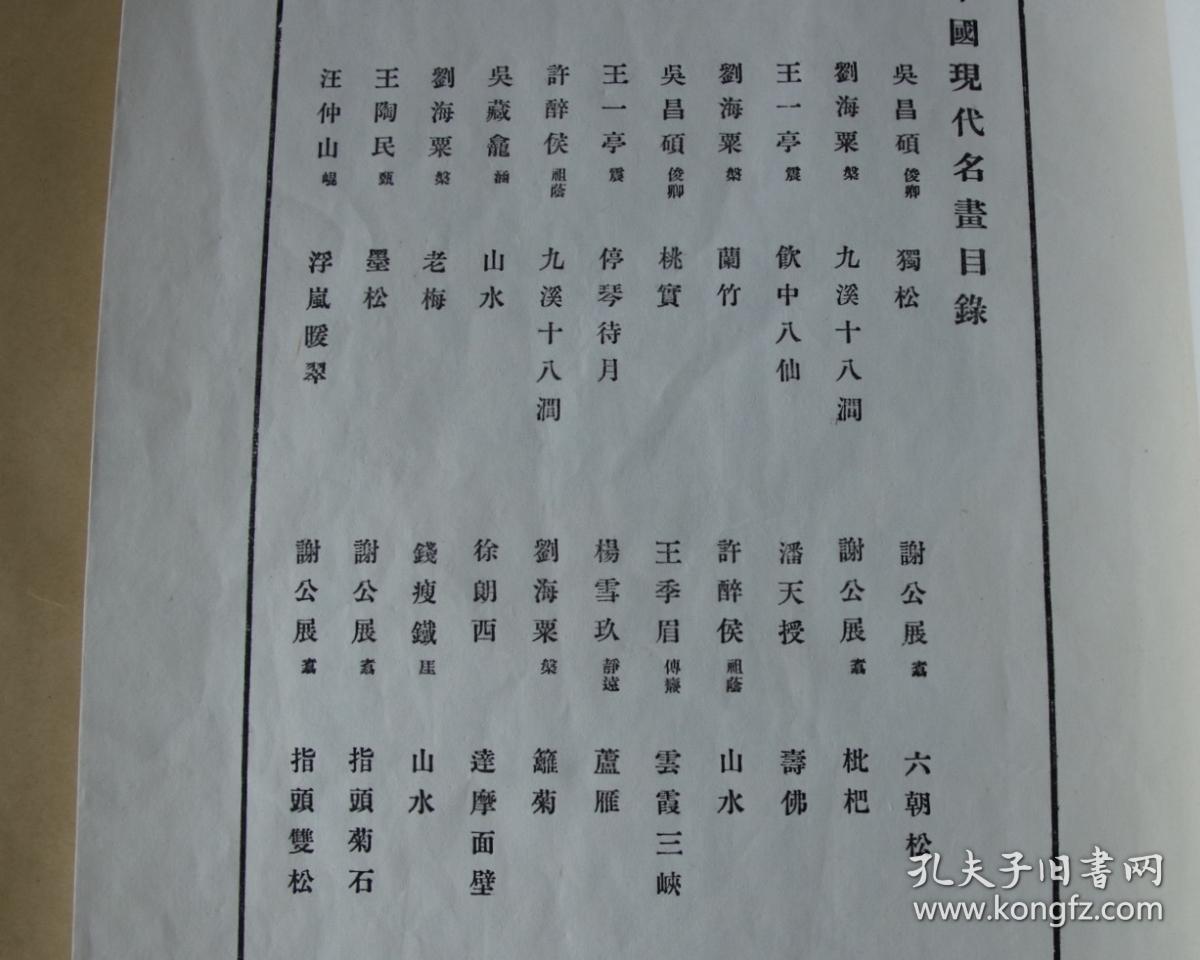 國現代名畫目錄
吳昌碩 俊卿 獨松
劉海粟 槃 九溪十八澗
王一亭 震 飲中八仙
劉海粟 槃 蘭竹
吳昌碩 俊卿 桃實
王一亭 震 停琴待月
許醉侯 祖蔭 九溪十八澗
吳藏龕 涵 山水
劉海粟 槃 老梅
王陶民 甄 墨松
汪仲山 崐 浮嵐暖翠
謝公展 翥 六朝松
謝公展 翥 枇杷
潘天授 壽佛
許醉侯 祖蔭 山水
王季眉 傅 雲霞三峽
楊雪玖 靜遠 蘆雁
劉海粟 槃 籬菊
徐朗西 達摩面壁
錢瘦鐵 厓 山水
謝公展 翥 指頭菊石
謝公展 翥 指頭雙松
孔夫子旧书网
www.kongfz.com